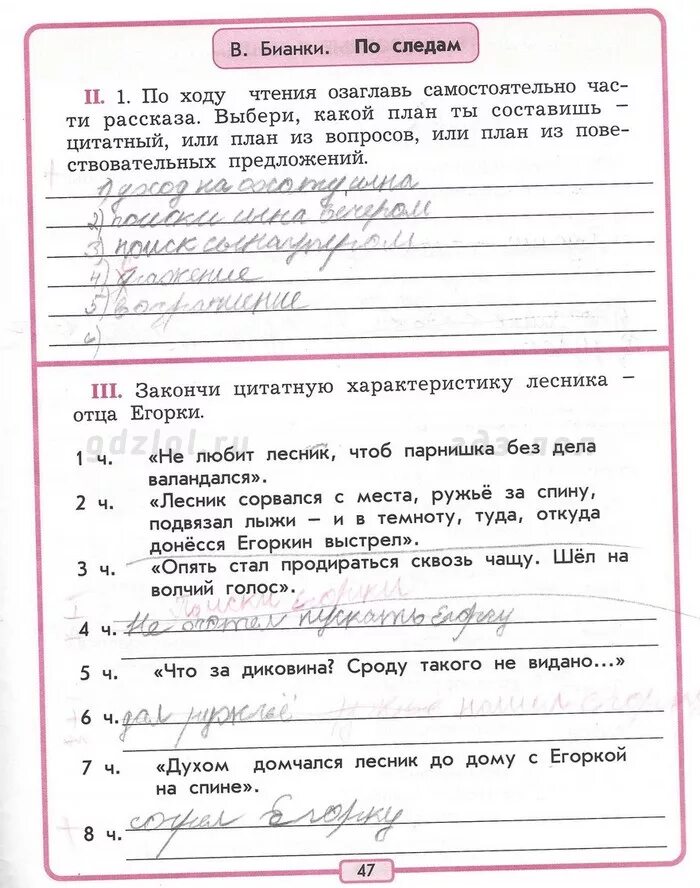 В. Бианки. По следам
II. 1. По ходу чтения озаглавь самостоятельно час-
ти рассказа. Выбери, какой план ты составишь –
цитатный, или план из вопросов, или план из пове-
ствовательных предложений.
1) уход на охоту
2) поиски вечером
3) поиск сына утром
4)
5) возращение
6)
III. Закончи цитатную характеристику лесника –
отца Егорки.
gdzlol.ru гдз.лол
1 ч. «Не любит лесник, чтоб парнишка без дела
валандался».
2 ч. «Лесник сорвался с места, ружьё за спину,
подвязал лыжи – и в темноту, туда, откуда
донёсся Егоркин выстрел».
3 ч. «Опять стал продираться сквозь чащу. Шёл на
волчий голос».
Поиски Егорки
4 ч. Не хотел пускать Егорку
5 ч. «Что за диковина? Сроду такого не видано...»
6 ч. дал ружьё нашел
7 ч. «Духом домчался лесник до дому с Егоркой
на спине».
8 ч. Егорку
47